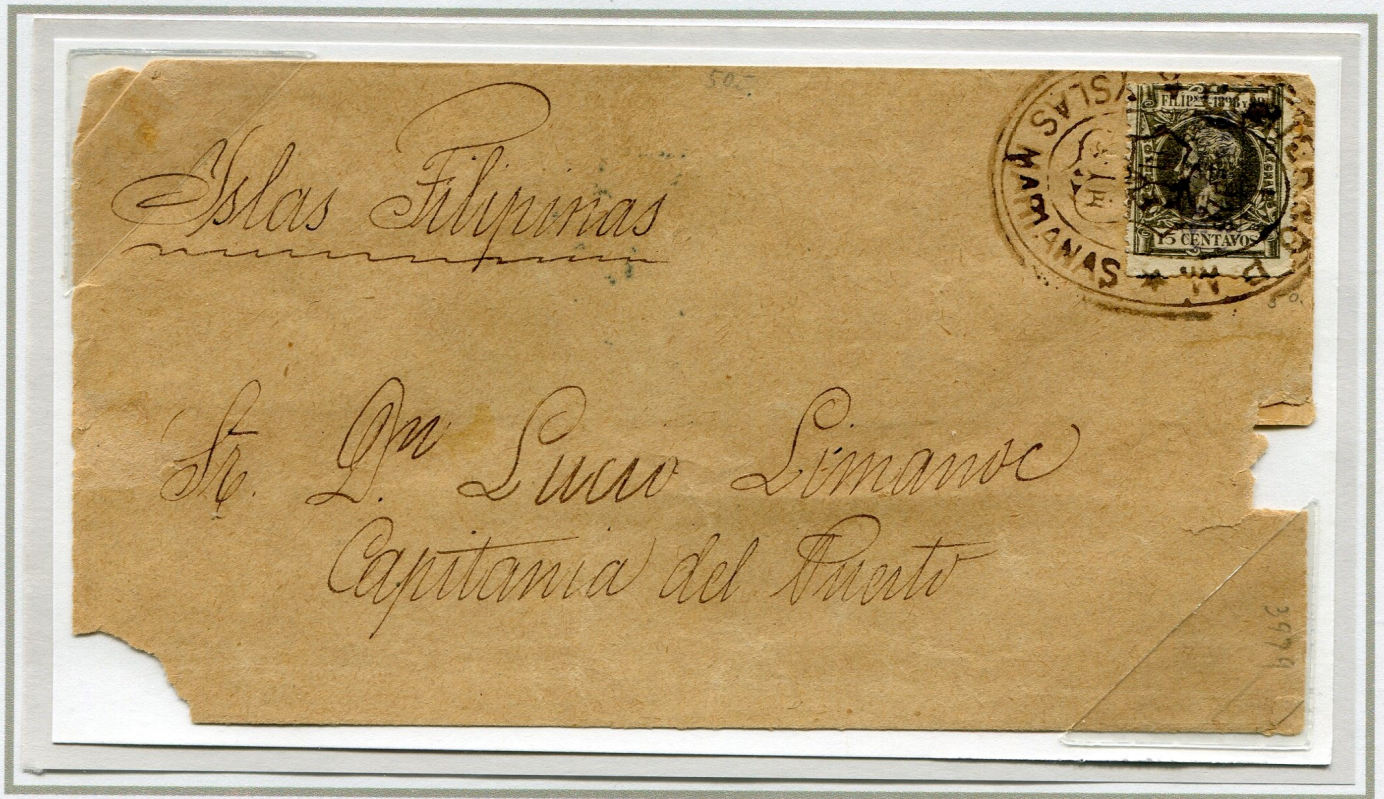 50-
Yslas Filipinas
YSLAS MARIANAS
FILIPNAS 1898 Y 99
15 CENTAVOS
50.
Sr. Dn Lucio Limanoc
Capitania del Puerto
3979